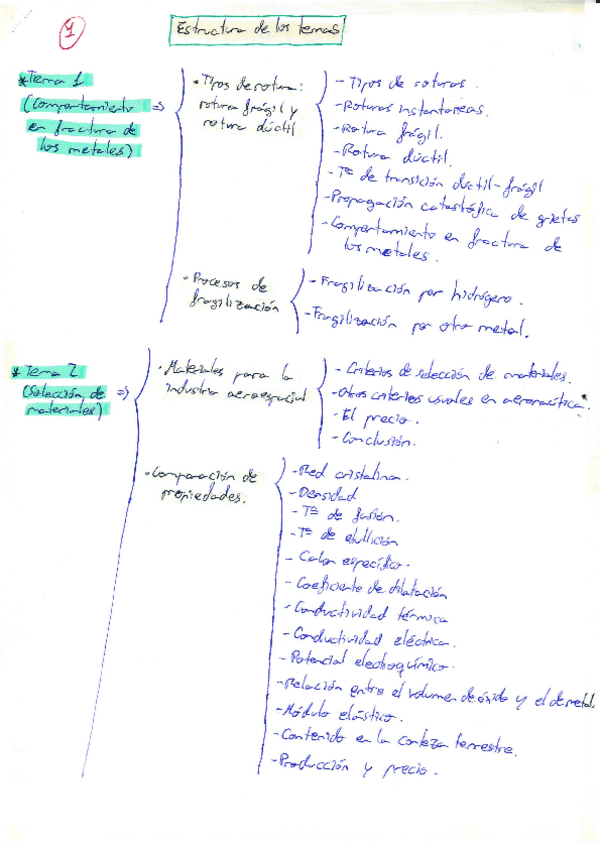 1
Estructura de los temas
* Tema 1
(Comportamiento =>
en fractura de
los metales)
• Tipos de rotura:
rotura frágil y
rotura dúctil
- Tipos de roturas.
- Roturas instantaneas.
- Rotura frágil.
- Rotura dúctil.
- Tª de transición dúctil-frágil
- Propagación catastrófica de grietas
- Comportamiento en fractura de
los metales.
• Procesos de
fragilización
- Fragilización por hidrógeno.
- Fragilización por otro metal.
* Tema 2
(Selección de =>
materiales)
• Materiales para la
industria aeroespacial
- Criterios de selección de materiales.
- Otros criterios usuales en aeronáutica.
- El precio.
- Conclusión.
• Comparación de
propiedades.
- Red cristalina.
- Densidad
- Tª de fusión.
- Tª de ebullición
- Calor específico.
- Coeficiente de dilatación
- Conductividad térmica
- Conductividad eléctrica.
- Potencial electroquímico.
- Relación entre el volumen de óxido y el de metal.
- Módulo elástico.
- Contenido en la corteza terrestre.
- Producción y precio.